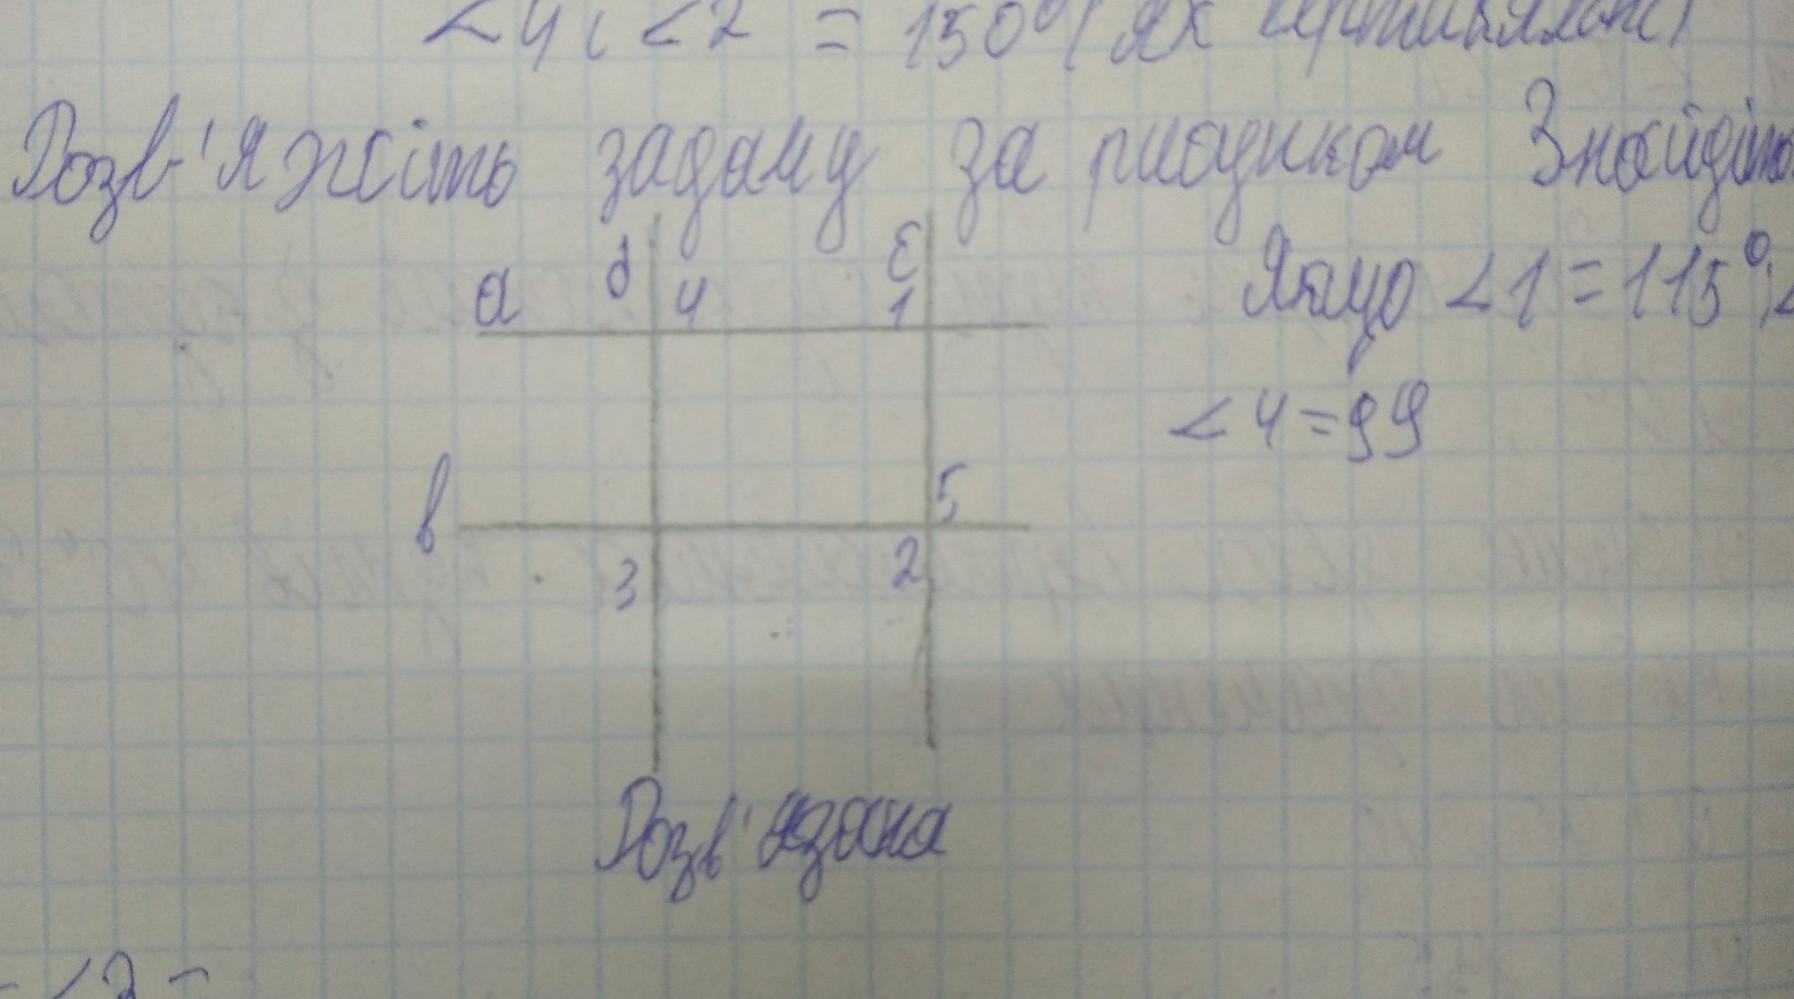 <4 і <2 = 150°( як вертикальні)
Розв'яжіть задачу за рисунком Знайдіть
d c
a 4 1 Якщо <1 = 115°; <
<4=99
в 5
3 2
Розв'язана
<3 =